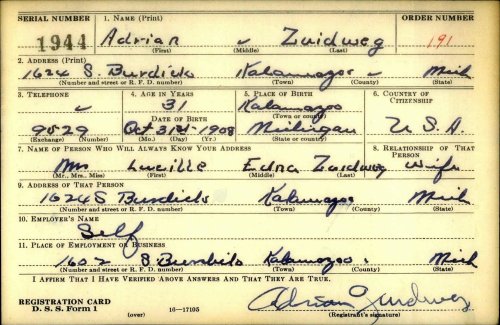 SERIAL NUMBER 1. NAME (Print) ORDER NUMBER
1944 Adrian — Zuidweg 191
(First) (Middle) (Last)
2. ADDRESS (Print)
1624 S. Burdick Kalamazoo — Mich
(Number and street or R. F. D. number) (Town) (County) (State)
3. TELEPHONE 4. AGE IN YEARS 5. PLACE OF BIRTH 6. COUNTRY OF CITIZENSHIP
31 Kalamazoo
DATE OF BIRTH (Town or county)
9529 Oct 31st 1908 Michigan U.S.A.
(Exchange) (Number) (Mo.) (Day) (Yr.) (State or country)
7. NAME OF PERSON WHO WILL ALWAYS KNOW YOUR ADDRESS 8. RELATIONSHIP OF THAT PERSON
Mrs Lucille Edna Zuidweg Wife
(Mr., Mrs., Miss) (First) (Middle) (Last)
9. ADDRESS OF THAT PERSON
1624 S Burdick Kalamazoo Mich
(Number and street or R. F. D. number) (Town) (County) (State)
10. EMPLOYER'S NAME
Self
11. PLACE OF EMPLOYMENT OR BUSINESS
1602 S Burdick Kalamazoo Mich
(Number and street or R. F. D. number) (Town) (County) (State)
I AFFIRM THAT I HAVE VERIFIED ABOVE ANSWERS AND THAT THEY ARE TRUE.
REGISTRATION CARD
D. S. S. Form 1 (over) 16—17105 Adrian Zuidweg
(Registrant's signature)